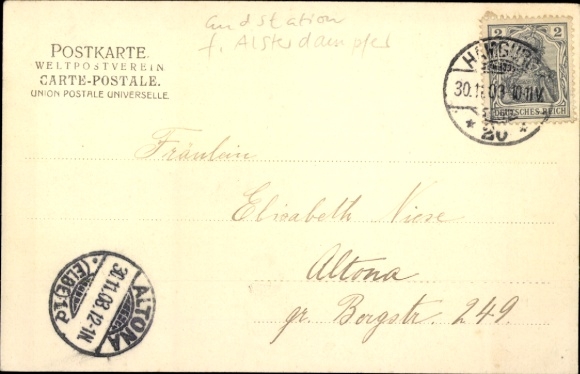 Endstation
f. Alsterdampfer
POSTKARTE.
WELTPOSTVEREIN
CARTE-POSTALE.
UNION POSTALE UNIVERSELLE.
2 2
DEUTSCHES REICH
HAMBURG
30.11.03. 10-11 V.
* 20 *
Fräulein
Elisabeth Niese
Altona
gr. Bergstr. 249.
ALTONA
30.11.03. 12-1N.
(ELBE) 1d